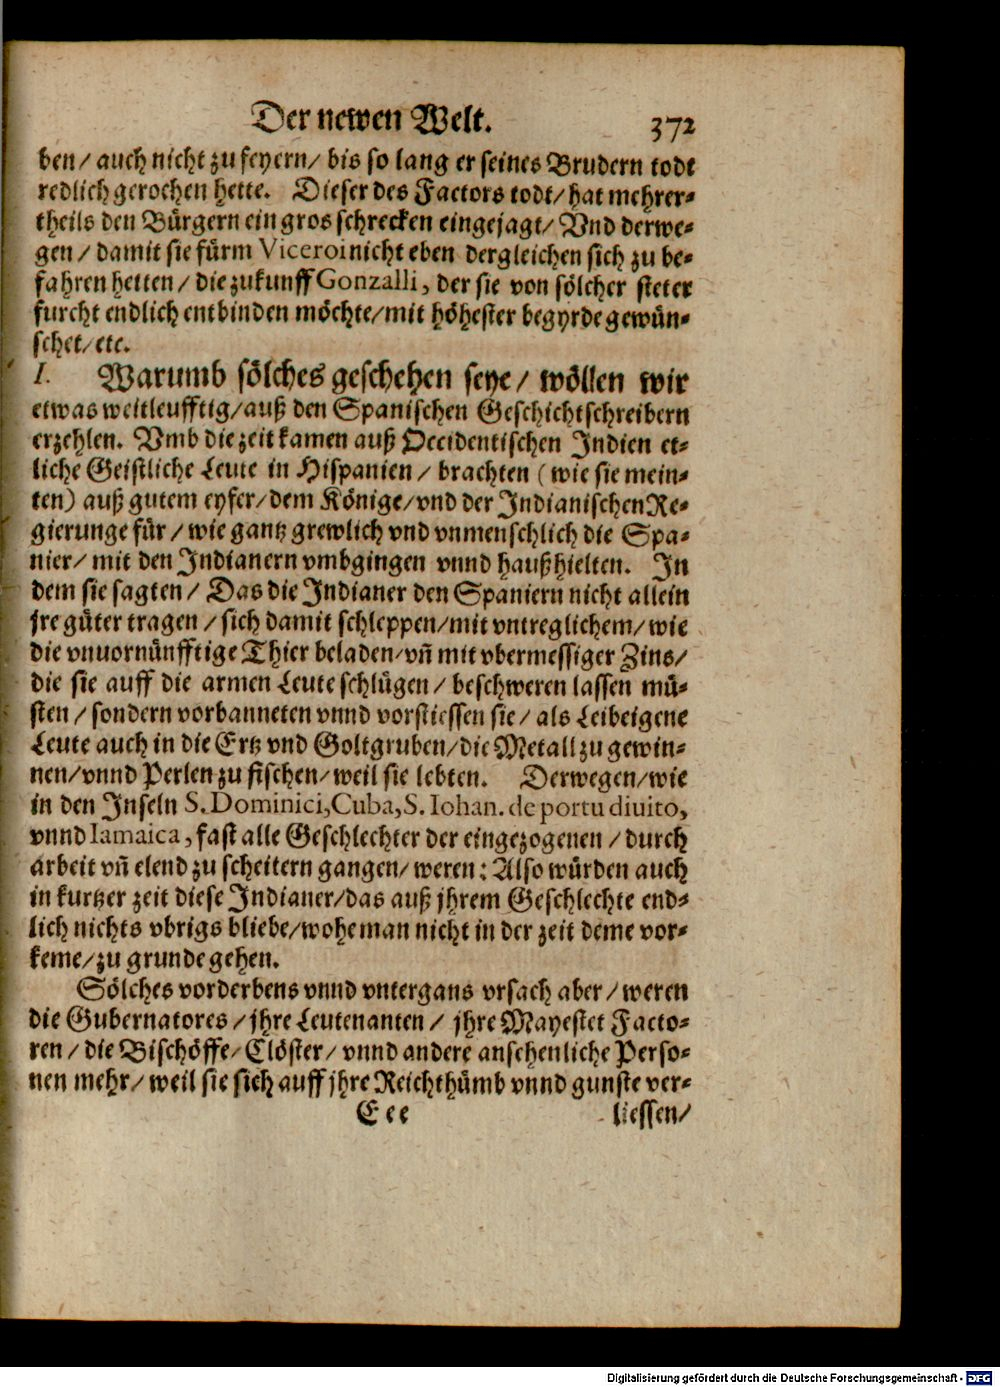 Der newen Welt. 372
ben/ auch nicht zu feyern/ bis so lang er seines Brudern todt
redlich gerochen hette. Dieser des Factors todt/ hat mehrer-
theils den Bürgern ein gros schrecken eingejagt/ Vnd derwe-
gen/ damit sie fürm Viceroi nicht eben dergleichen sich zu be-
fahren hetten/ die zukunff Gonzalli, der sie von sölcher steter
furcht endlich entbinden möchte/ mit höhester begyrde gewün-
schet/ etc.
I. Warumb sölches geschehen seye/ wöllen wir
etwas weitleufftig/ auß den Spanischen Geschichtschreibern
erzehlen. Vmb die zeit kamen auß Occidentischen Indien et-
liche Geistliche Leute in Hispanien/ brachten (wie sie mein-
ten) auß gutem eyfer/ dem Könige/ vnd der Indianischen Re-
gierunge für/ wie gantz grewlich vnd vnmenschlich die Spa-
nier/ mit den Indianern vmbgingen vnnd haußhielten. In
dem sie sagten/ Das die Indianer den Spaniern nicht allein
jre güter tragen/ sich damit schleppen/ mit vntreglichem/ wie
die vnuornünfftige Thier beladen/ vn̄ mit vbermessiger Zins/
die sie auff die armen Leute schlügen/ beschweren lassen mü-
sten/ sondern vorbanneten vnnd vorstiessen sie/ als Leibeigene
Leute auch in die Ertz vnd Goltgruben/ die Metall zu gewin-
nen/ vnnd Perlen zu fischen/ weil sie lebten. Derwegen/ wie
in den Inseln S. Dominici, Cuba, S. Iohan. de portu diuito,
vnnd Iamaica, fast alle Geschlechter der eingezogenen/ durch
arbeit vn̄ elend zu scheitern gangen/ weren: Also würden auch
in kurtzer zeit diese Indianer/ das auß jhrem Geschlechte end-
lich nichts vbrigs bliebe/ wohe man nicht in der zeit deme vor-
keme/ zu grunde gehen.
Sölches vorderbens vnnd vntergans vrsach aber/ weren
die Gubernatores/ jhre Leutenanten/ jhre Mayestet Facto-
ren/ die Bischöffe/ Clöster/ vnnd andere ansehenliche Perso-
nen mehr/ weil sie sich auff jhre Reichthümb vnnd gunste ver-
E ee liessen/
Digitalisierung gefördert durch die Deutsche Forschungsgemeinschaft - DFG